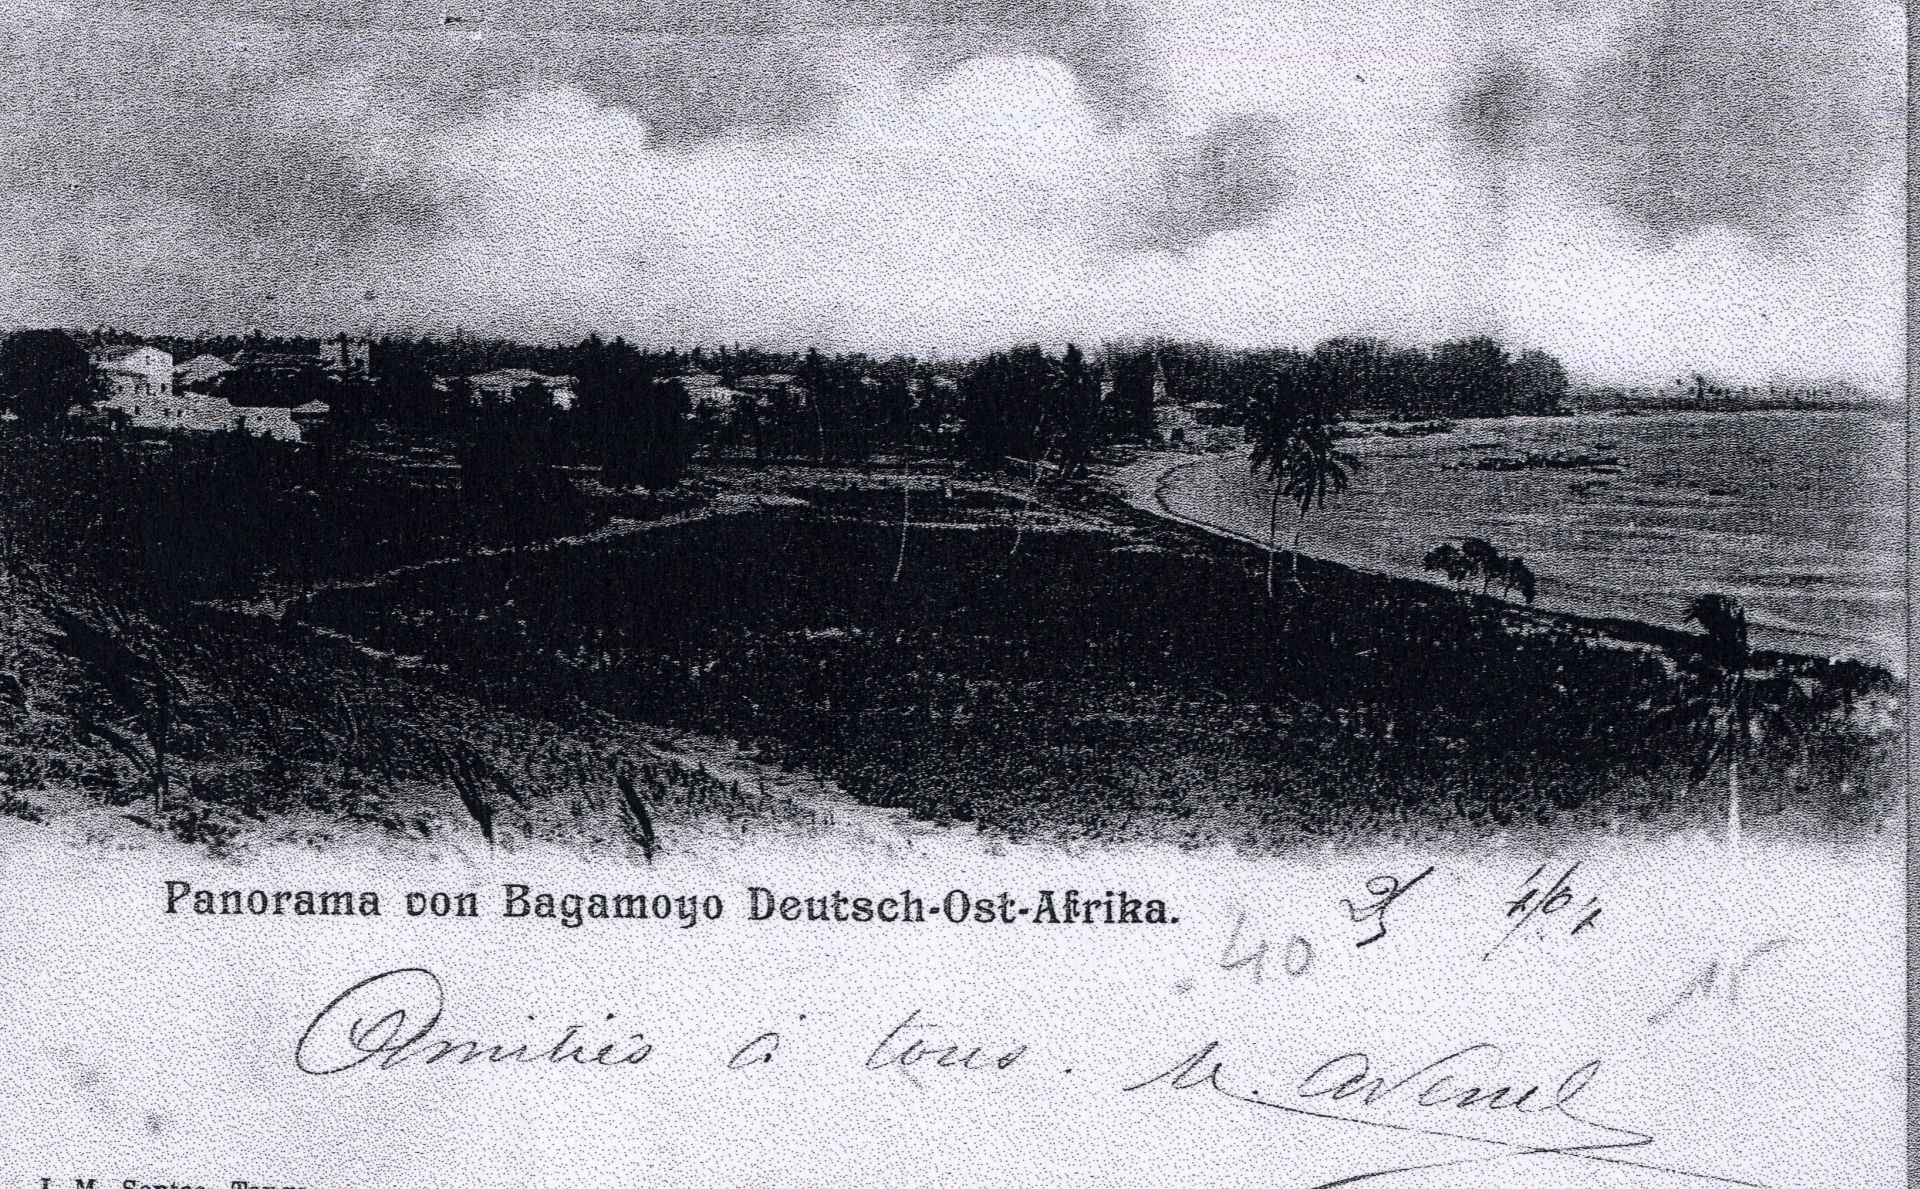 Panorama von Bagamoyo Deutsch-Ost-Afrika.
40
Amitiés à tous. M. Avenel
J. M. Santos, Tanga